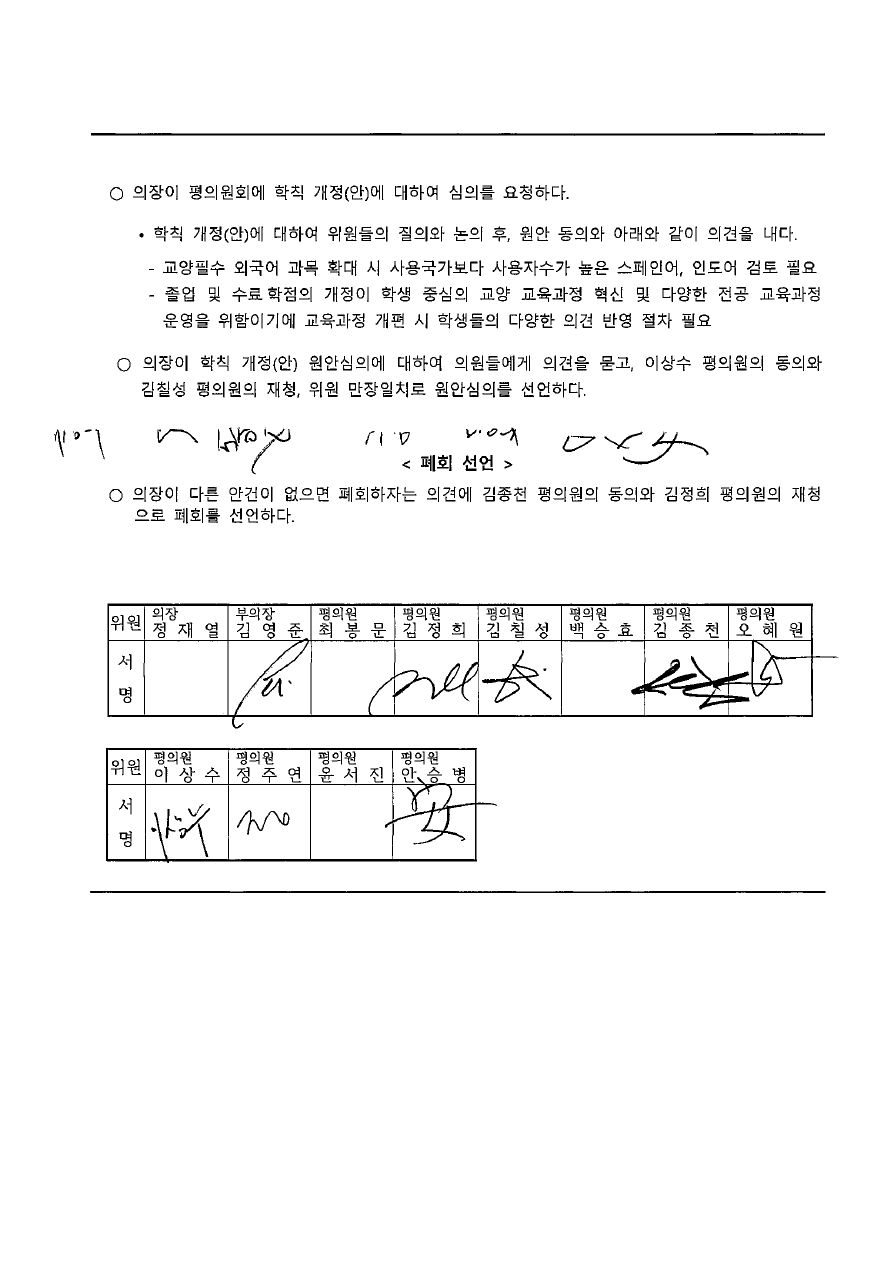 ○ 의장이 평의원회에 학칙 개정(안)에 대하여 심의를 요청하다.
• 학칙 개정(안)에 대하여 위원들의 질의와 논의 후, 원안 동의와 아래와 같이 의견을 내다.
- 교양필수 외국어 과목 확대 시 사용국가보다 사용자수가 높은 스페인어, 인도어 검토 필요
- 졸업 및 수료학점의 개정이 학생 중심의 교양 교육과정 혁신 및 다양한 전공 교육과정
운영을 위함이기에 교육과정 개편 시 학생들의 다양한 의견 반영 절차 필요
○ 의장이 학칙 개정(안) 원안심의에 대하여 의원들에게 의견을 묻고, 이상수 평의원의 동의와
김칠성 평의원의 재청, 위원 만장일치로 원안심의를 선언하다.
< 폐회 선언 >
○ 의장이 다른 안건이 없으면 폐회하자는 의견에 김종천 평의원의 동의와 김정희 평의원의 재청
으로 폐회를 선언하다.
위원 의장 부의장 평의원 평의원 평의원 평의원 평의원 평의원
정재열 김영준 최봉문 김정희 김칠성 백승효 김종천 오혜원
서
명
위원 평의원 평의원 평의원 평의원
이상수 정주연 윤서진 안승병
서
명 安